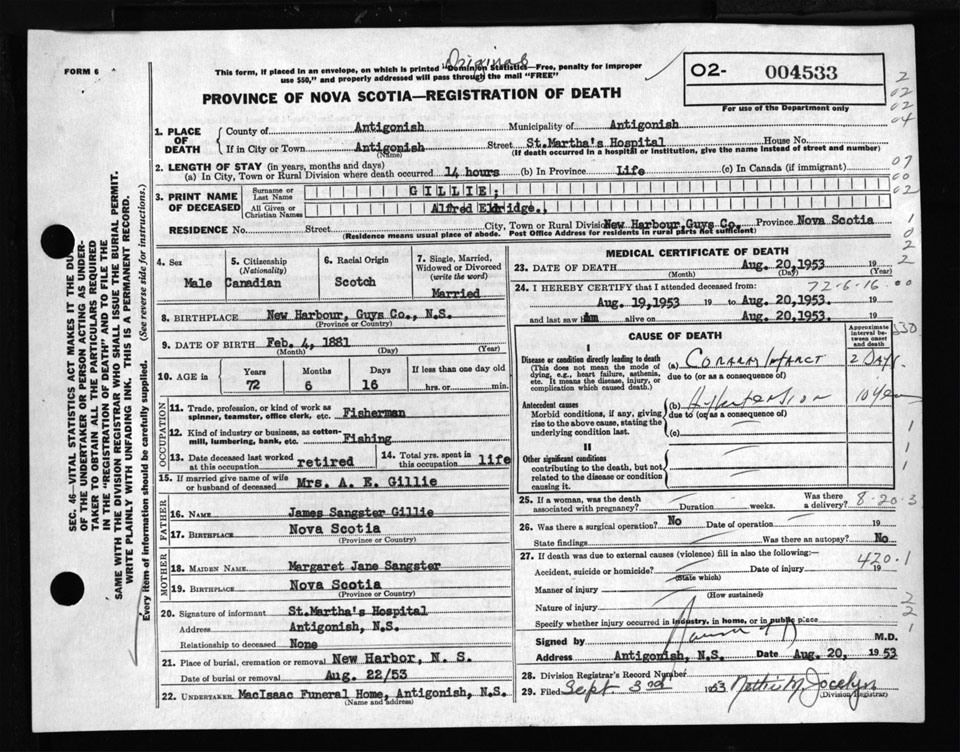 FORM 6
Original
This form, if placed in an envelope, on which is printed "Dominion Statistics—Free, penalty for improper
use $50," and properly addressed will pass through the mail "FREE"
O2- 004533
For use of the Department only
PROVINCE OF NOVA SCOTIA—REGISTRATION OF DEATH
2
02
02
04
1. PLACE OF DEATH
County of Antigonish Municipality of Antigonish
If in City or Town Antigonish Street St.Martha's Hospital House No.
(Name) (If death occurred in a hospital or institution, give the name instead of street and number)
2. LENGTH OF STAY (in years, months and days)
(a) In City, Town or Rural Division where death occurred 14 hours (b) In Province Life (c) In Canada (if immigrant)
07
00
02
3. PRINT NAME OF DECEASED
Surname or Last Name GILLIE;
All Given or Christian Names Alfred Eldridge.
RESIDENCE No. Street City, Town or Rural Division New Harbour,Guys Co. Province Nova Scotia
(Residence means usual place of abode. Post Office Address for residents in rural parts not sufficient)
1
0
2
2
4. Sex Male
5. Citizenship (Nationality) Canadian
6. Racial Origin Scotch
7. Single, Married, Widowed or Divorced (write the word) Married
8. BIRTHPLACE New Harbour, Guys Co., N.S.
(Province or Country)
9. DATE OF BIRTH Feb. 4, 1881
(Month) (Day) (Year)
10. AGE in Years Months Days If less than one day old
72 6 16 hrs. or min.
OCCUPATION
11. Trade, profession, or kind of work as spinner, teamster, office clerk, etc. Fisherman
12. Kind of industry or business, as cotton-mill, lumbering, bank, etc. Fishing
13. Date deceased last worked at this occupation retired
14. Total yrs. spent in this occupation life
15. If married give name of wife or husband of deceased Mrs. A. E. Gillie
FATHER
16. NAME James Sangster Gillie
17. BIRTHPLACE Nova Scotia
(Province or Country)
MOTHER
18. MAIDEN NAME Margaret Jane Sangster
19. BIRTHPLACE Nova Scotia
(Province or Country)
20. Signature of informant St.Martha's Hospital
Address Antigonish, N.S.
Relationship to deceased None
21. Place of burial, cremation or removal New Harbor, N. S.
Date of burial or removal Aug. 22/53
22. UNDERTAKER MacIsaac Funeral Home, Antigonish, N.S.
(Name and address)
MEDICAL CERTIFICATE OF DEATH
23. DATE OF DEATH Aug. 20,1953 19
(Month) (Day) (Year)
24. I HEREBY CERTIFY that I attended deceased from: 72-6-16-00
Aug. 19,1953 19 to Aug. 20,1953. 19
and last saw him alive on Aug. 20,1953. 19
CAUSE OF DEATH
Approximate interval between onset and death
I
Disease or condition directly leading to death
(This does not mean the mode of dying, e.g., heart failure, asthenia, etc. It means the disease, injury, or complication which caused death.)
(a) Coronary Infarct 2 Days
due to (or as a consequence of)
Antecedent causes
Morbid conditions, if any, giving rise to the above cause, stating the underlying condition last.
(b) Hypertension 10 Years
due to (or as a consequence of)
(c)
II
Other significant conditions
contributing to the death, but not related to the disease or condition causing it.
530
1
1
1
25. If a woman, was the death associated with pregnancy? Duration weeks. Was there a delivery?
8-20-3
26. Was there a surgical operation? No Date of operation 19
State findings Was there an autopsy? No
27. If death was due to external causes (violence) fill in also the following:—
420.1
Accident, suicide or homicide? Date of injury 19
(State which)
Manner of injury
(How sustained)
Nature of injury
Specify whether injury occurred in industry, in home, or in public place
2
2
1
Signed by M.D.
Address Antigonish, N.S. Date Aug. 20, 1953
28. Division Registrar's Record Number
29. Filed Sept 3rd 1953 Nettie M. Jocelyn
(Division Registrar)
SEC. 46—VITAL STATISTICS ACT MAKES IT THE DUTY
OF THE UNDERTAKER OR PERSON ACTING AS UNDER-
TAKER TO OBTAIN ALL THE PARTICULARS REQUIRED
IN THE "REGISTRATION OF DEATH" AND TO FILE THE
SAME WITH THE DIVISION REGISTRAR WHO SHALL ISSUE THE BURIAL PERMIT.
WRITE PLAINLY WITH UNFADING INK. THIS IS A PERMANENT RECORD.
Every item of information should be carefully supplied. (See reverse side for instructions.)